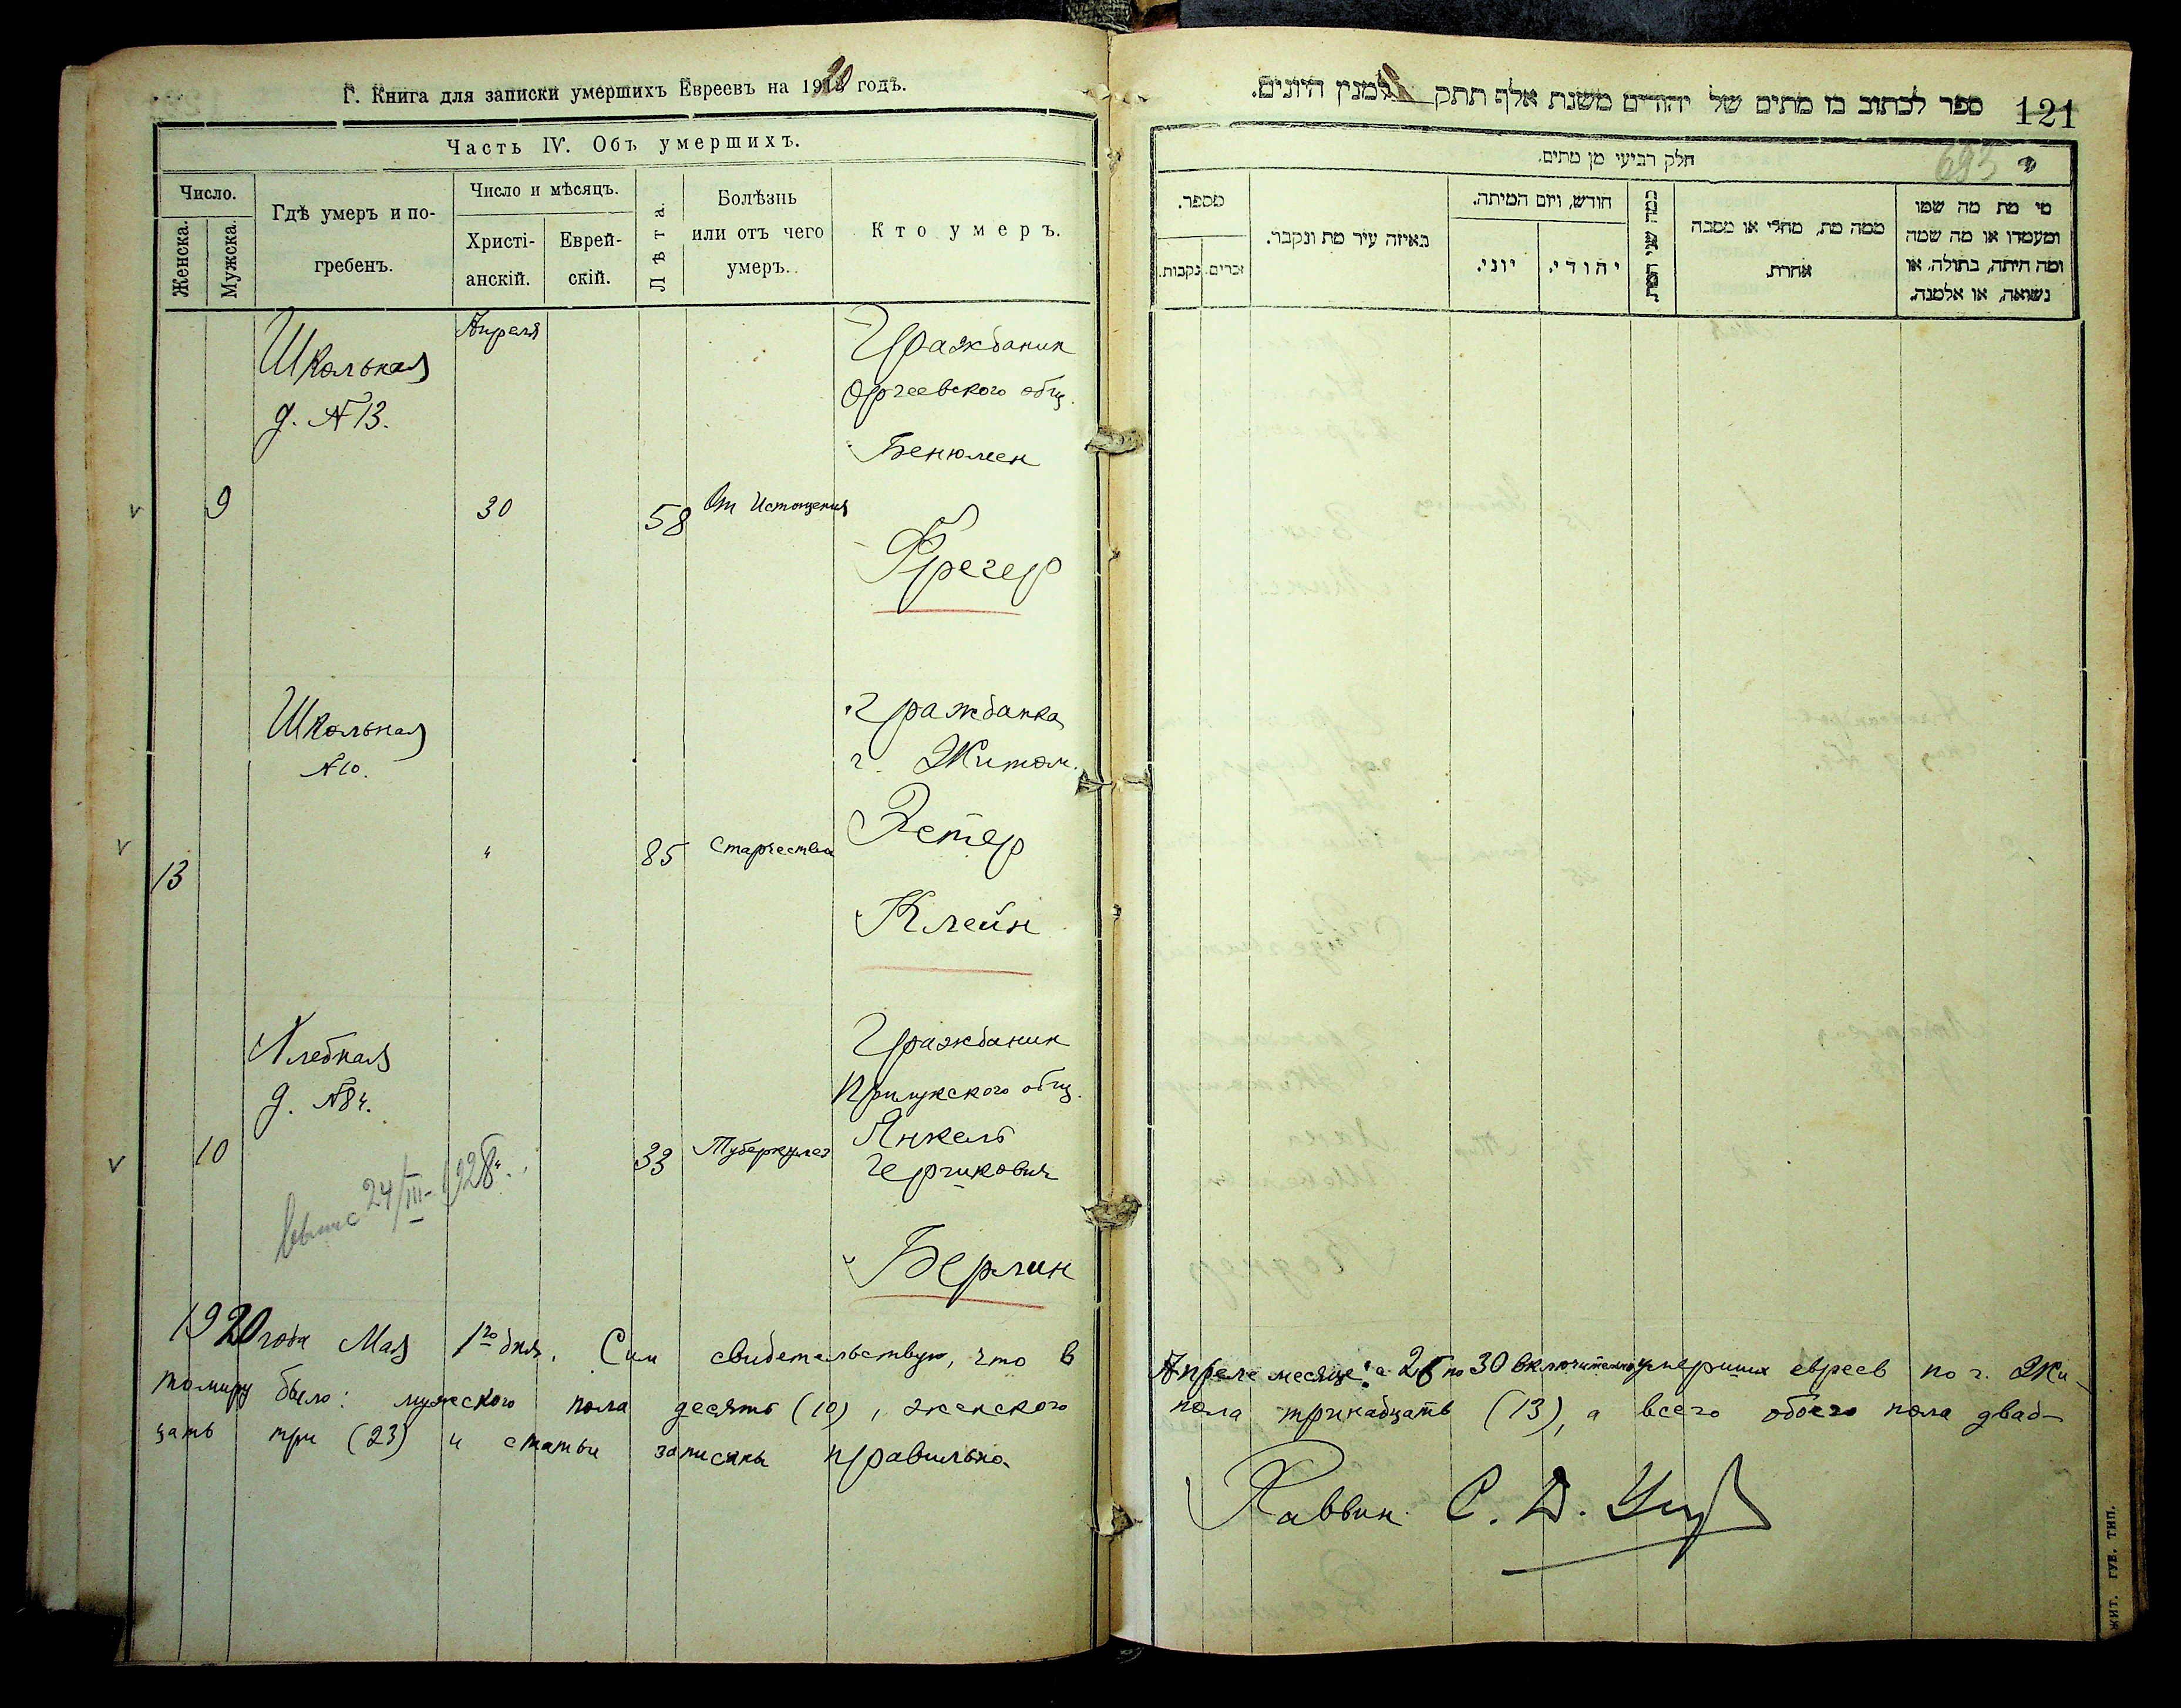 Г. Книга для записки умершихъ Евреевъ на 1920 годъ.
Часть IV. Объ умершихъ.
Число.
Женска.
Мужска.
Гдѣ умеръ и по-
гребенъ.
Число и мѣсяцъ.
Христі-
анскій.
Еврей-
скій.
Лѣта.
Болѣзнь
или отъ чего
умеръ.
Кто умеръ.
Школьная
д. №13.
Апреля
Гражданин
Оргеевского общ.
Бенюмен
9
30
58
От Истощения
Фрегер
Школьная
№10.
Гражданка
г. Житом.
Эстер
13
"
85
Старчества
Клейн
Хлебная
д. №84.
Гражданин
Прилукского общ.
Янкель
Герчикович
10
33
Туберкулез
24/III-1928г.
Берлин
1920 года Мая 1го дня. Сим свидетельствую, что в
томиру было: мужеского пола десять (10), женского
цать три (23) и статьи записаны правильно.
ספר לכתוב בו מתים של יהודים משנת אלף תתק למנין היונים.
121
693
חלק רביעי מן מתים.
מספר.
זכרים.
נקבות.
באיזה עיר מת ונקבר.
חודש, ויום המיתה.
יוני.
יהודי.
כמה שני המת
ממה מת, מחלי או מסבה
אחרת.
מי מת מה שמו
ומעמדו או מה שמה
ומה היתה, בתולה, או
נשואה, או אלמנה.
Апреле месяце с 26 по 30 включительно умерших евреев по г. Жи-
пола тринадцать (13), а всего обоего пола двад-
Раввин С. Д.
ЖИТ. ГУБ. ТИП.